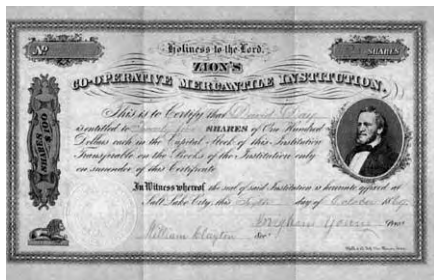 No
SHARES
Holiness to the Lord.
ZION'S
CO-OPERATIVE MERCANTILE INSTITUTION.
This is to Certify that David Day
is entitled to Twenty five SHARES of One Hundred
Dollars each in the Capital Stock of this Institution
Transferable on the Books of the Institution only
on surrender of this Certificate
In Witness whereof the seal of said Institution is hereunto affixed at
Salt Lake City, this day of October 1869
Brigham Young Pres.
William Clayton Sec.
SHARES $100